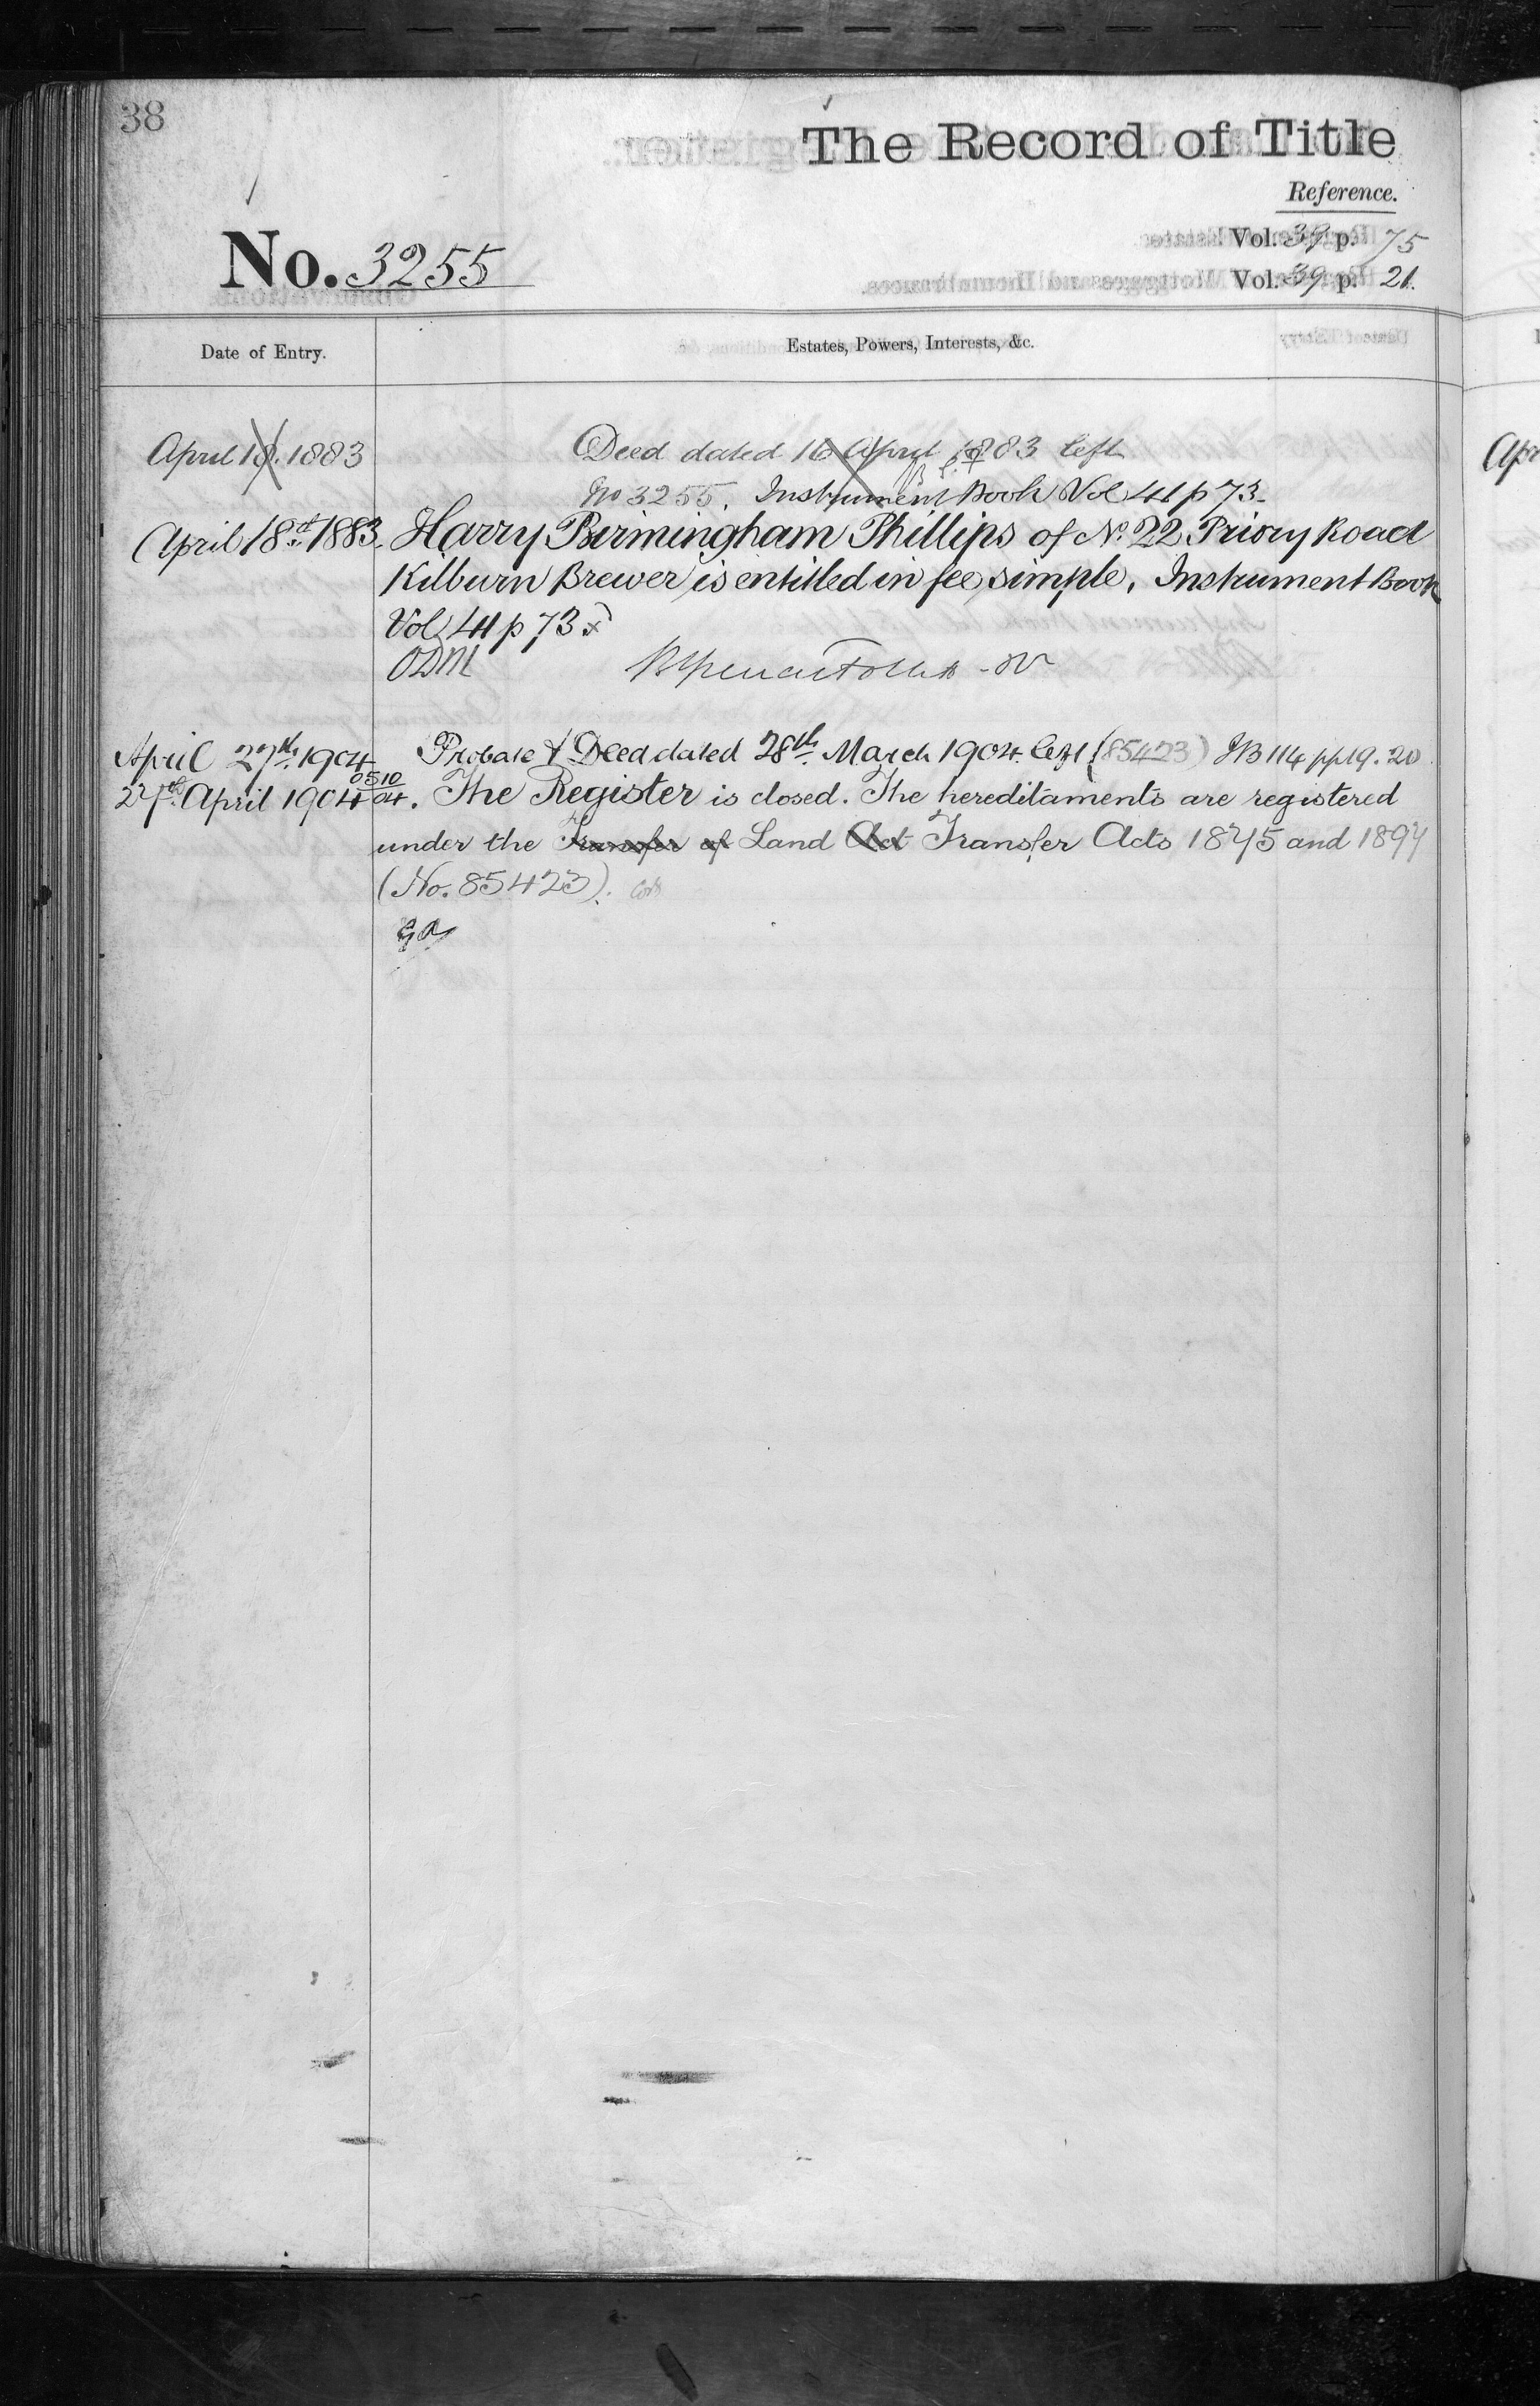 38
The Record of Title
Reference.
Vol. 39 p. 75
No. 3255
Vol. 39 p. 21.
Date of Entry.
Estates, Powers, Interests, &c.
April 18. 1883
Deed dated 16 April 1883 left
No 3255. Instrument Book Vol 41 p 73.
April 18th 1883. Harry Birmingham Phillips of No. 22 Priory Road
Kilburn Brewer is entitled in fee simple. Instrument Book
Vol 41 p 73
ODM
April 27th 1904 Probate & Deed dated 28th March 1904 left (85423) IB 114 pp 19. 20
0510/04
27th April 1904. The Register is closed. The hereditaments are registered
under the Transfer of Land Act Transfer Acts 1875 and 1897
(No. 85423).